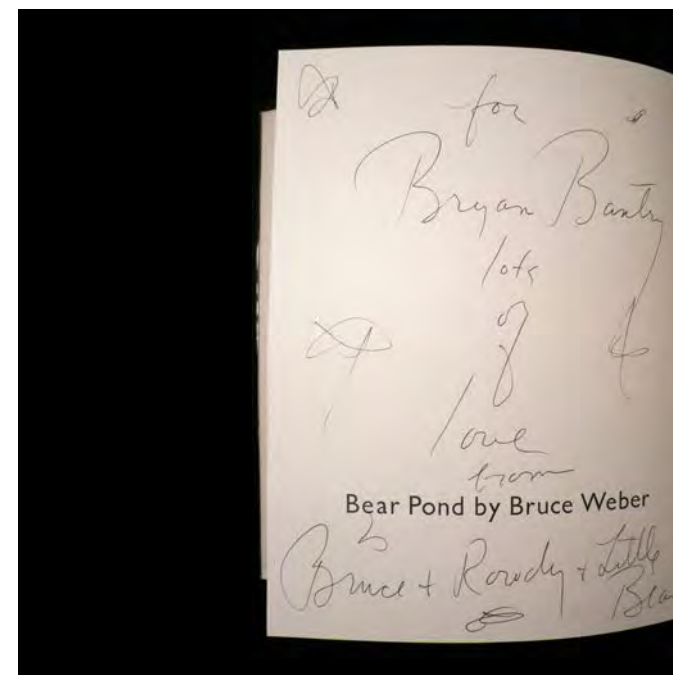 for
Bryan Bantry
lots
of
love
from
Bear Pond by Bruce Weber
Bruce + Rowdy + Little
Bea